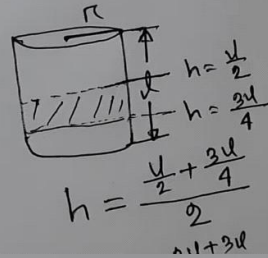 r
l
h = l/2
h = 3l/4
h = (l/2 + 3l/4)/2